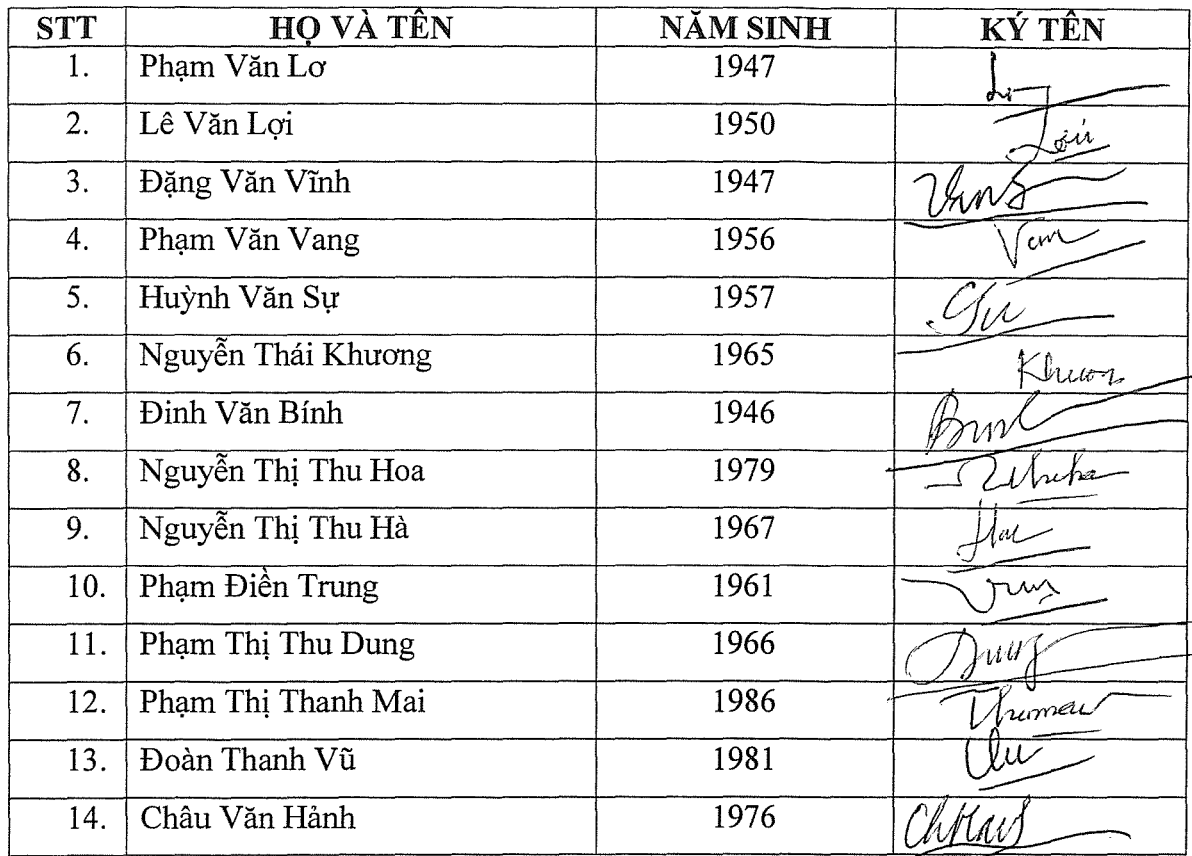 STT HỌ VÀ TÊN NĂM SINH KÝ TÊN
1. Phạm Văn Lơ 1947
2. Lê Văn Lợi 1950 Lợi
3. Đặng Văn Vĩnh 1947
4. Phạm Văn Vang 1956
5. Huỳnh Văn Sự 1957
6. Nguyễn Thái Khương 1965 Khương
7. Đinh Văn Bính 1946
8. Nguyễn Thị Thu Hoa 1979
9. Nguyễn Thị Thu Hà 1967
10. Phạm Điền Trung 1961
11. Phạm Thị Thu Dung 1966 Dung
12. Phạm Thị Thanh Mai 1986
13. Đoàn Thanh Vũ 1981
14. Châu Văn Hảnh 1976